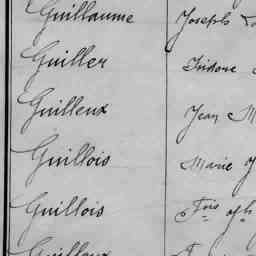 Guillaume Joseph
Guiller Isidore
Guilleux Jean M
Guillois Marie J
Guillois Fois
Guilloux